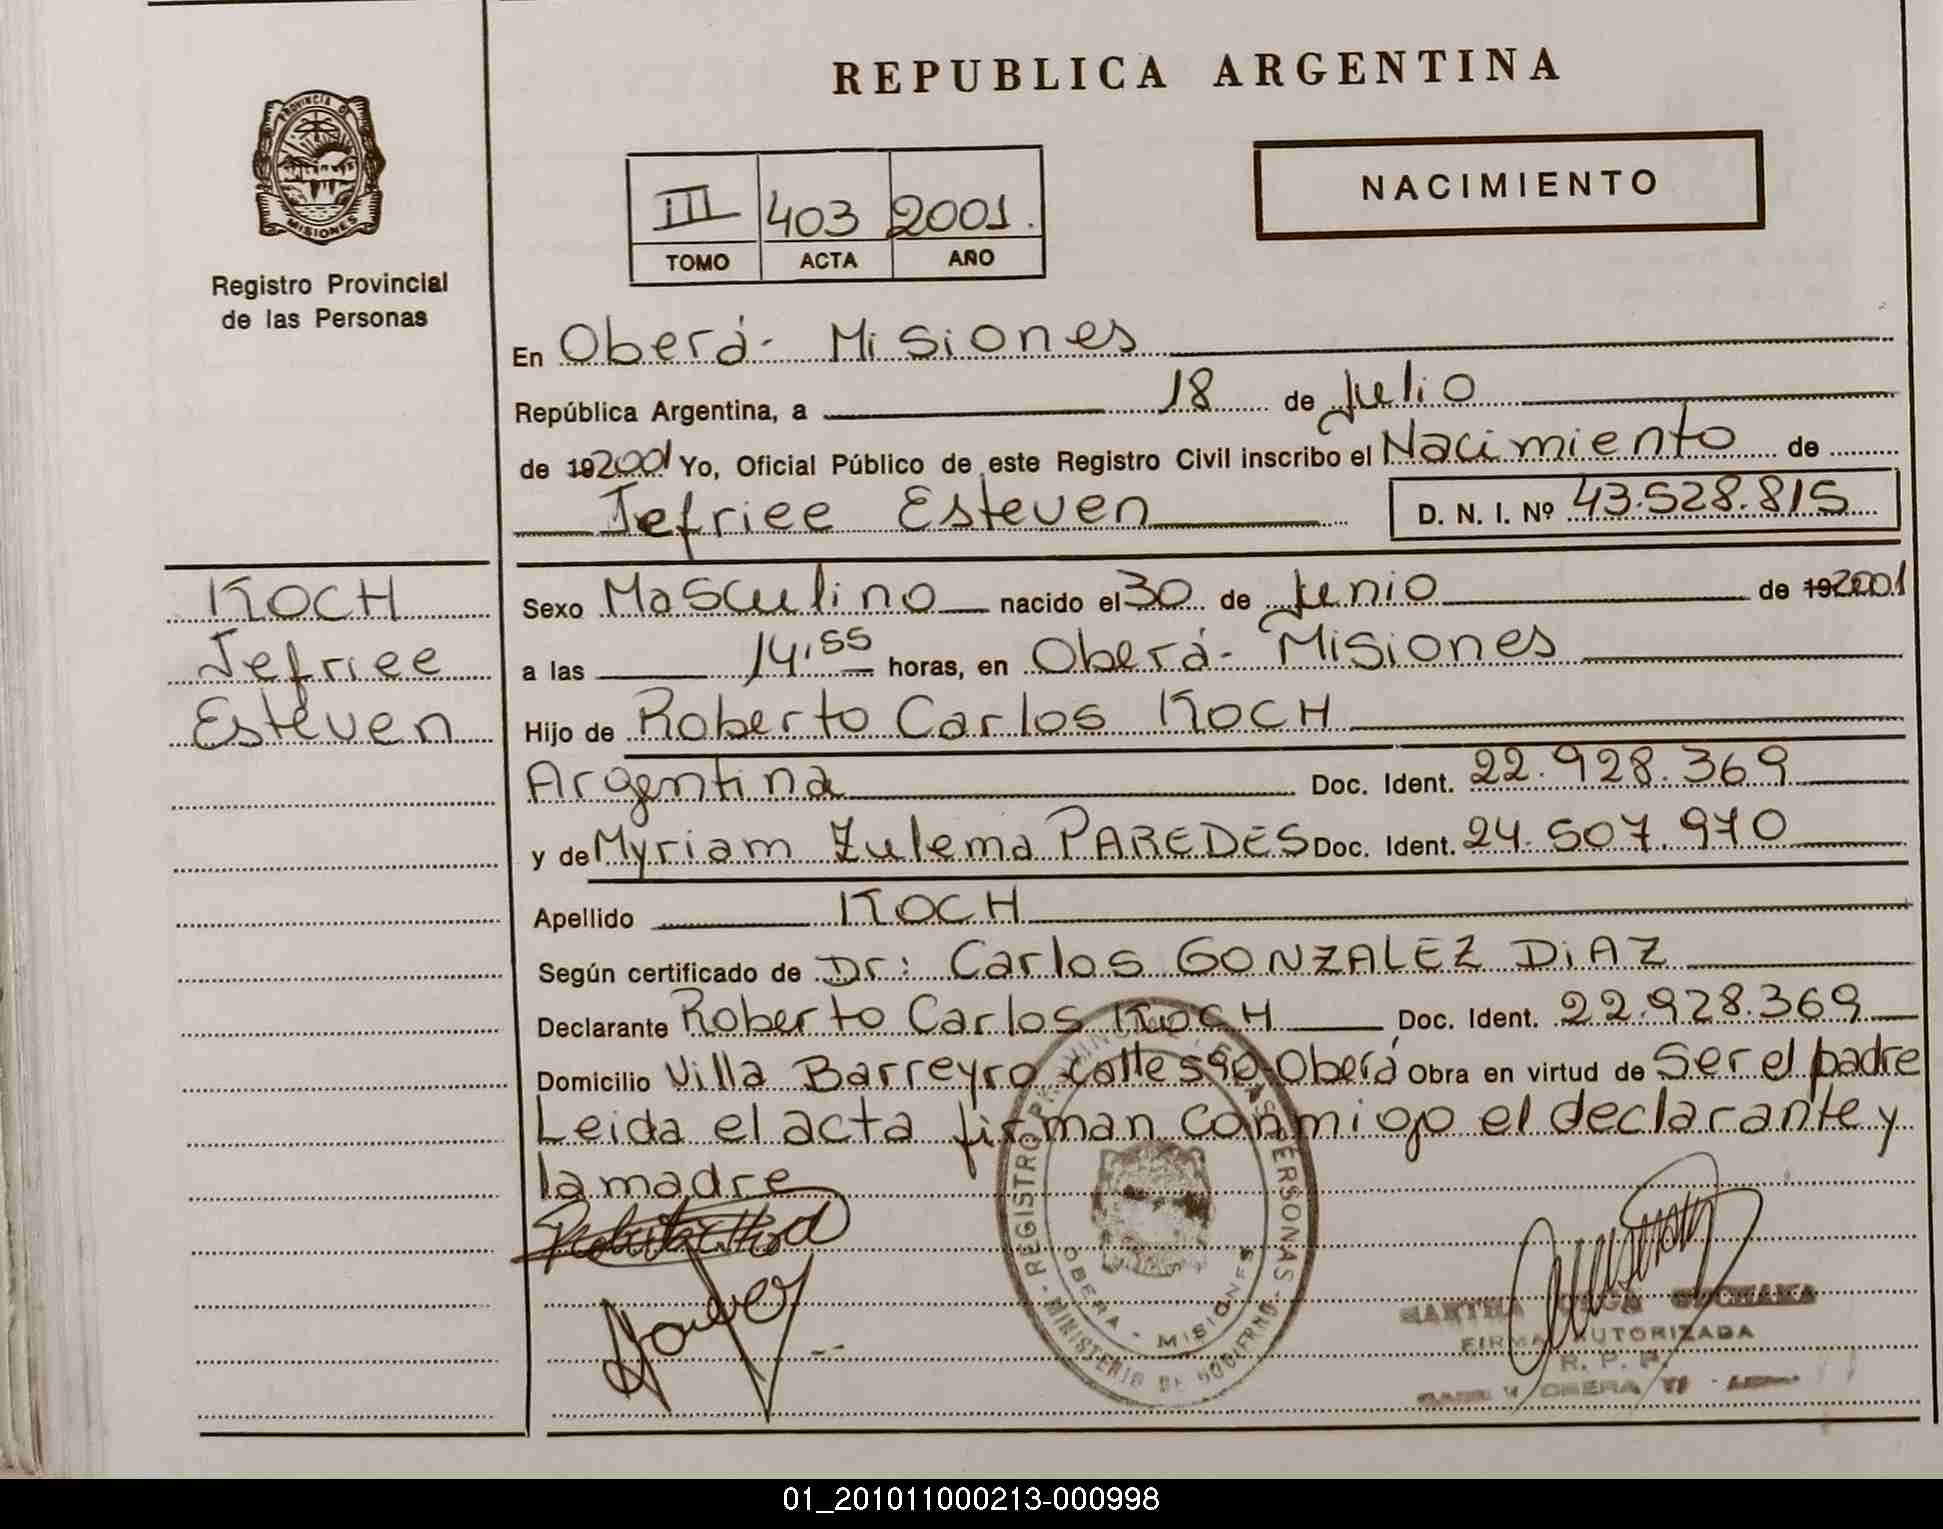 REPUBLICA ARGENTINA
PROVINCIA DE
MISIONES
Registro Provincial
de las Personas
NACIMIENTO
III 403 2001.
TOMO ACTA AÑO
En Oberá- Misiones
República Argentina, a 18 de Julio
de 192001 Yo, Oficial Público de este Registro Civil inscribo el Nacimiento de
Jefriee Esteven D. N. I. Nº 43.528.815
KOCH
Jefriee
Esteven
Sexo Masculino nacido el 30 de Junio de 192001
a las 14,55 horas, en Oberá- Misiones
Hijo de Roberto Carlos KOCH
Argentina Doc. Ident. 22.928.369
y de Myriam Zulema PAREDES Doc. Ident. 24.507.970
Apellido KOCH
Según certificado de Dr: Carlos GONZALEZ DiAZ
Declarante Roberto Carlos KOCH Doc. Ident. 22.928.369
Domicilio Villa Barreyro calle Oberá Obra en virtud de Ser el padre
Leida el acta firman conmigo el declarante y
la madre
REGISTRO PROVINCIAL DE LAS PERSONAS
OBERA - MISIONES
MINISTERIO DE GOBIERNO
MARTHA OLGA
FIRMA AUTORIZADA
R. P. P.
OBERA
01_201011000213-000998